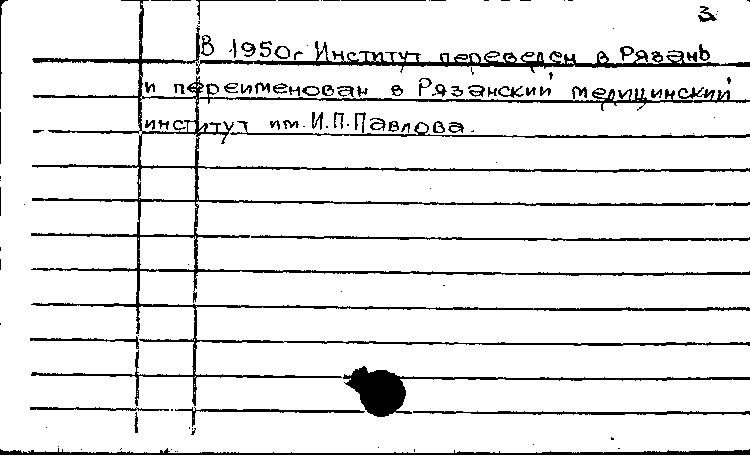 3
В 1950г Институт переведен в Рязань
и переименован в Рязанский медицинский
институт им. И.П.Павлова.